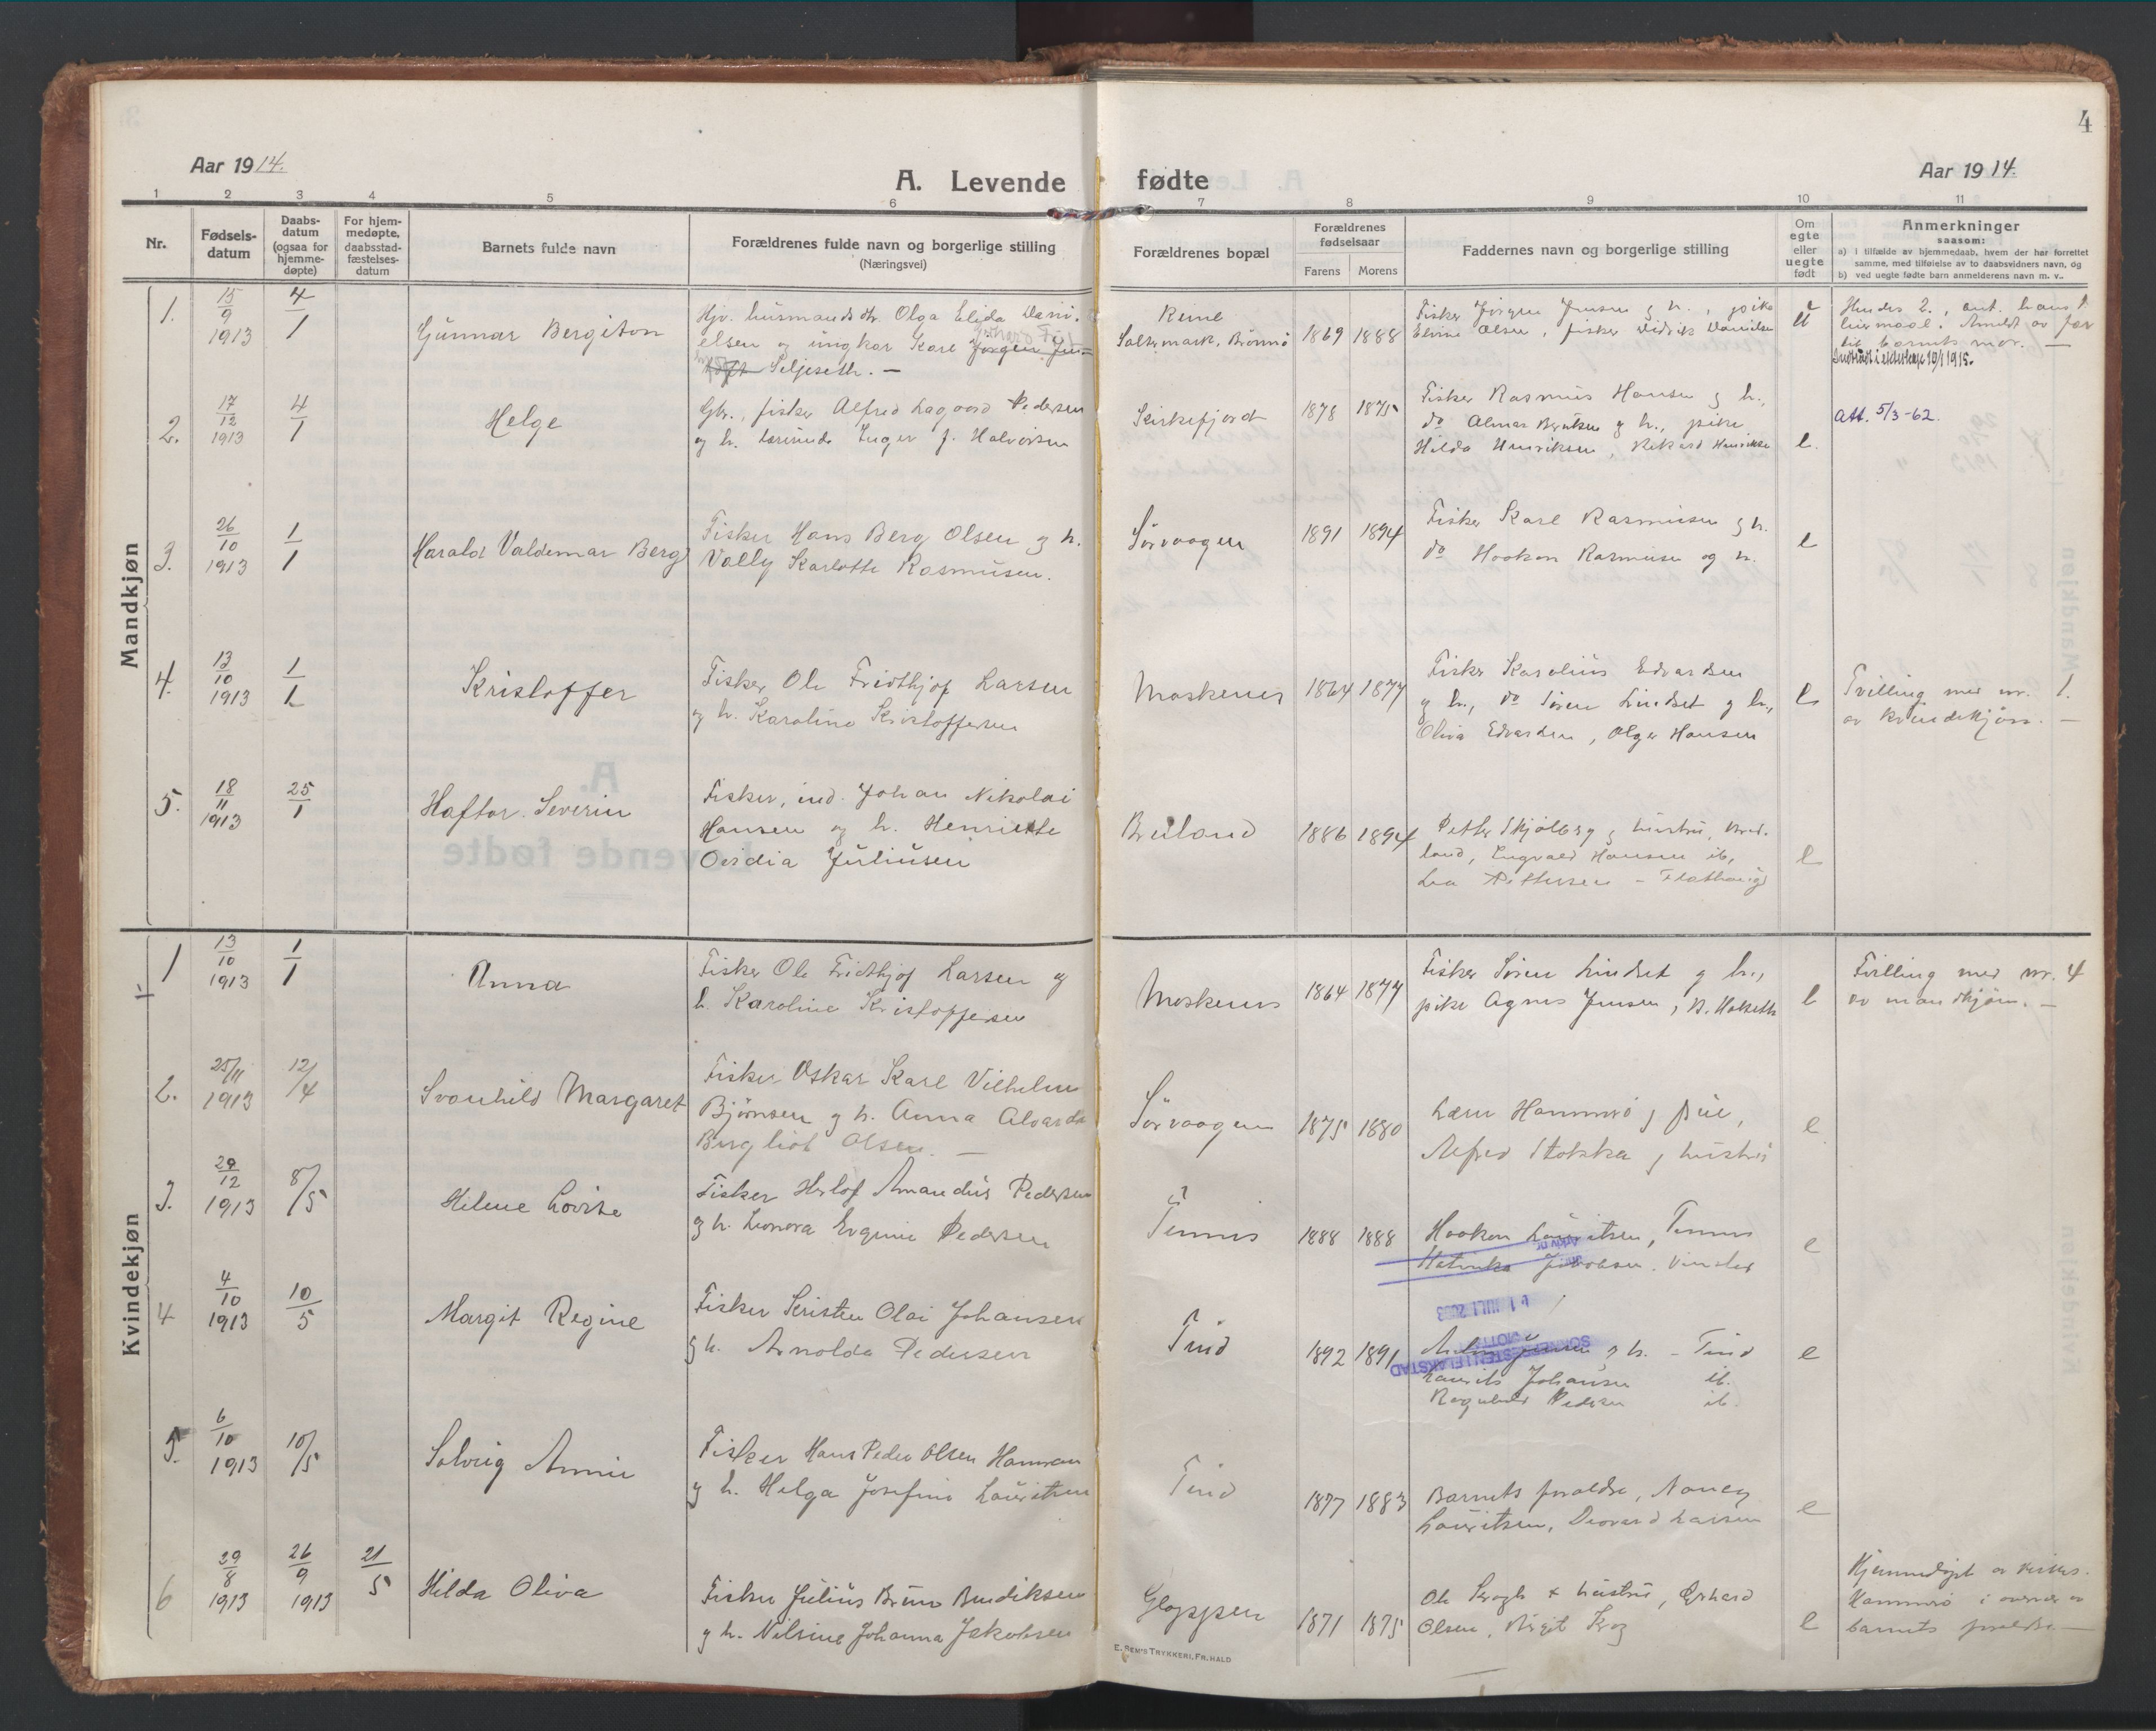 4
Aar 1914.
A. Levende fødte
Aar 1914.
1 2 3 4 5 6 7 8 9 10 11
Nr.
Fødsels-
datum
Daabs-
datum
(ogsaa for
hjemme-
døpte)
For hjem-
medøpte,
daabsstad-
fæstelses-
datum
Barnets fulde navn
Forældrenes fulde navn og borgerlige stilling
(Næringsvei)
Forældrenes bopæl
Forældrenes
fødselsaar
Farens
Morens
Faddernes navn og borgerlige stilling
Om
egte
eller
uegte
født
Anmerkninger
saasom:
a) i tilfælde av hjemmedaab, hvem der har forrettet
samme, med tilføielse av to daabsvidners navn, og
b) ved uegte fødte barn anmelderens navn m. v..
Mandkjøn
1.
15/9 1913
4/1
Gunnar Bergiton
Hjv. husmandsdtr. Olga Elida Dani-
elsen og ungkar Karl Jørgen
Seljeseth. —
Reine
Saltermark, Brönnö
1869 1888
Fisker Jörgen Jensen g h., pike
Elvine Olsen, fisker Didrik Danielsen
U
Hendes 2., ant. hans 1.
leiermaal. Anmeldt av far
til barnets mor. —
10/1 1915.
2.
17/12 1913
4/1
Helge
Gbr., fisker Alfred Lagaard Pedersen
og h. lærerinde Inger J. Halvorsen
Kirkefjord
1878 1875
Fisker Rasmus Hansen g h.,
do Almar Bendiksen g h., pike
Hilda Henriksen, Rikard Henriksen
e.
Att. 5/3-62.
3.
26/10 1913
1/1
Harald Valdemar Berg
Fisker Hans Berg Olsen g h.
Vally Karlotte Rasmusen.
Sörvaagen
1891 1894
Fisker Karl Rasmusen g h.
do Haakon Rasmusen og h.
e
4.
13/10 1913
1/1
Kristoffer
Fisker Ole Fridthjof Larsen
g h. Karoline Kristoffersen
Moskenes
1864 1877
Fisker Karolius Edvardsen
g h., do Sören Lindset g h.,
Oliva Edvardsen, Olger Hansen
e
Tvilling med nr. 1.
av kvindekjön. —
5.
18/11 1913
25/1
Haftor Severin
Fisker, ind. Johan Nikolai
Hansen og h. Henriette
Ovidia Juliusen
Breiland
1886 1894
Petter Skjølberg g hustru, Bred-
land, Engvald Hansen ib.
Lea Pettersen –
e
Kvindekjøn
1
13/10 1913
1/1
Anna
Fisker Ole Fridthjof Larsen g
h. Karoline Kristoffersen
Moskenes
1864 1877
Fisker Sören Lindset g h.,
pike Agnes Jensen, B. Holseth
e
Tvilling med nr. 4
av mandkjön. —
2.
25/11 1913
12/4
Svanhild Margaret
Fisker Oskar Karl Vilhelm
Bjørnsen g h. Anna Alvarda
Bergliot Olsen. —
Sörvaagen
1875 1880
Lærer Hammerö g frue,
Alfred Stokka g hustru
e
3.
29/12 1913
8/5
Helene Lovise
Fisker Herlof Amandus Pedersen
g h. Leonora Eugenie Pedersen
Tennes
1888 1888
Haakon Lauritsen, Tennes
Jakobsen.
e
4
4/10 1913
10/5
Margit Regine
Fisker Kristen Olai Johansen
g h. Arnolda Pedersen
Tind
1892 1891
g h. – Tind
Laurits Johansen ib.
Ragnhild Pedersen ib.
e
5.
6/10 1913
10/5
Solveig Annie
Fisker Hans Peder Olsen Hamran
g h. Helga Josefine Lauritsen
Tind
1877 1883
Barnets foraldre, Nancy
Lauritsen, Larsen
e
6
29/8 1913
26/9 1913
21/5
Hilda Oliva
Fisker Julius Brun Bendiksen
g h. Nilsine Johanna Jakobsen
Gloppen
1871 1875
Ole Krogh + hustru, Gerhard
Olsen, Birgit Krog
e
Hjemmedøpt av
Hammerö i overvær av
barnets foraldre. —
E. SEM'S TRYKKERI, FR.HALD